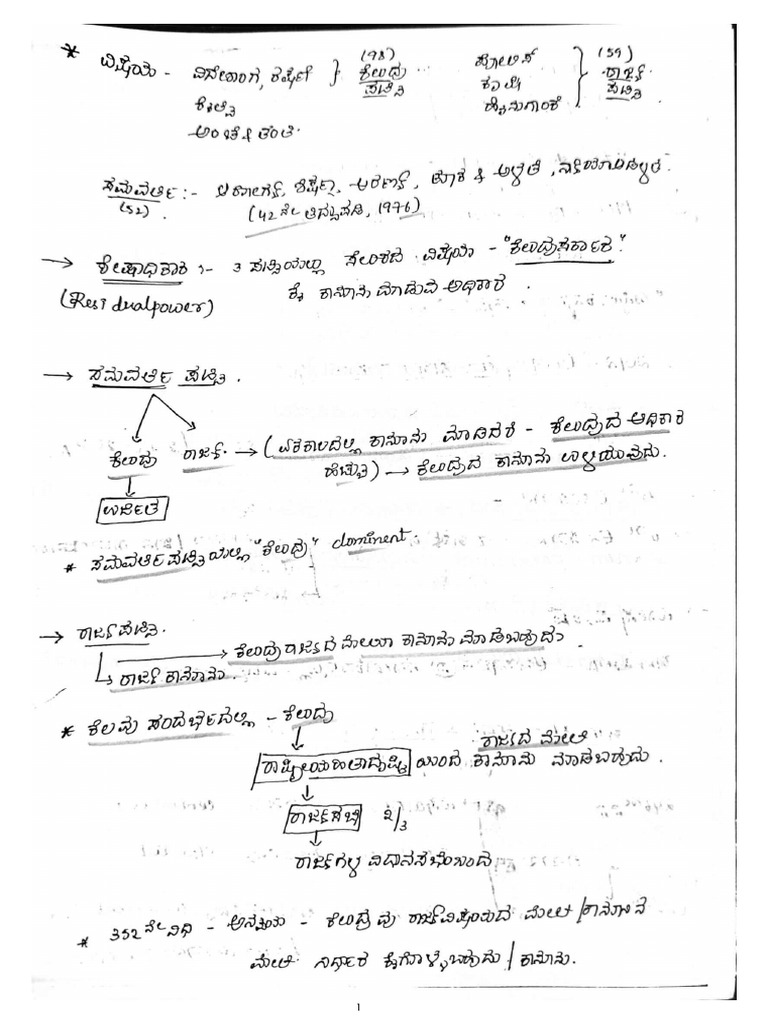 * ವಿಷಯ - ವಿದೇಶಾಂಗ, ರಕ್ಷಣೆ } (98) ಕೇಂದ್ರ ಪಟ್ಟಿ
ರೈಲ್ವೆ
ಅಂಚೆ & ತಂತಿ
ಪೋಲಿಸ್ } (59) ರಾಜ್ಯ ಪಟ್ಟಿ
ಕೃಷಿ
ಹೈನುಗಾರಿಕೆ
ಸಮವರ್ತಿ :- ಆರೋಗ್ಯ, ಶಿಕ್ಷಣ, ಅರಣ್ಯ, ತೂಕ & ಅಳತೆ,
(52) (42 ನೇ ತಿದ್ದುಪಡಿ, 1976)
→ ಶೇಷಾಧಿಕಾರ :- 3 ಪಟ್ಟಿಯಲ್ಲೂ ಸೇರದ ವಿಷಯ - "ಕೇಂದ್ರಸರ್ಕಾರ"
(Residualpower) ಕ್ಕೆ ಕಾನೂನು ಮಾಡುವ ಅಧಿಕಾರ.
→ ಸಮವರ್ತಿ ಪಟ್ಟಿ.
ಕೇಂದ್ರ ರಾಜ್ಯ. → (ಏಕಕಾಲದಲ್ಲಿ ಕಾನೂನು ಮಾಡಿದರೆ - ಕೇಂದ್ರದ ಅಧಿಕಾರ
ಹೆಚ್ಚು) → ಕೇಂದ್ರದ ಕಾನೂನು ಉಳಿಯುವುದು.
ಊರ್ಜಿತ
* ಸಮವರ್ತಿ ಪಟ್ಟಿಯಲ್ಲಿ "ಕೇಂದ್ರ" dominent.
→ ರಾಜ್ಯಪಟ್ಟಿ.
→ ಕೇಂದ್ರ ರಾಜ್ಯದ ಮೇಲೂ ಕಾನೂನು ಮಾಡಬಹುದು
→ ರಾಜ್ಯ ಕಾನೂನು.
* ಕೆಲವು ಸಂದರ್ಭದಲ್ಲಿ - ಕೇಂದ್ರ
ರಾಜ್ಯದ ಮೇಲೆ
ರಾಷ್ಟ್ರೀಯ ಹಿತಾದೃಷ್ಟಿ ಯಿಂದ ಕಾನೂನು ಮಾಡಬಹುದು.
ರಾಜ್ಯಸಭೆ 2/3
ರಾಜ್ಯಗಳ ವಿಧಾನಸಭೆಯಿಂದ
* 352 ನೇ ವಿಧಿ - ಅನ್ವಯ - ಕೇಂದ್ರವು ರಾಜ್ಯವಿಷಯದ ಮೇಲೆ / ಕಾನೂನಿನ
ಮೇಲೆ ನಿರ್ಧಾರ ಕೈಗೊಳ್ಳಬಹುದು / ಕಾನೂನು.
1